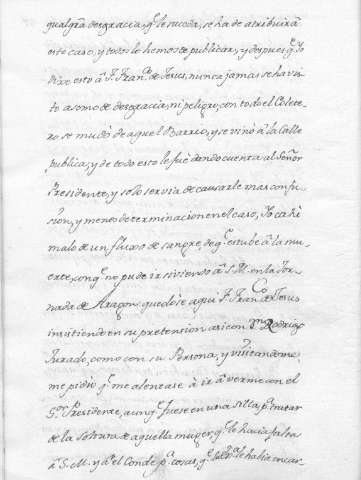 qualgrã desgracia, q̃ le suceda, se ha de atribuir â
este caso, y todos lo hemos de publicar, y despues q̃ Jo
dixe esto â F. Franco de Jesus, nunca jamas se ha vis-
to asomo de desgracia, ni peligro, con todo el Coletè-
ro se mudó de aquel Barrio, y se vinó â la Calle
publica, y de todo esto le fuè dando cuenta al Señor
Presidente, y solo servia de causarle mas confu-
sion, y menos determinacion en el caso, Jo cahi
malo de un fluxo de sangre de q̃ estube â la mu-
erte, con q̃ no pude ir sirviendo â S. M. en la Jor-
nada de Aragon, quedóse aqui F. Franco de Jesus
insistiendo en su pretension asi con Dn Rodrigo
Jurado, como con su Persona, y visitandome,
me pidió q̃ me alentase â ir â verme con el
Sor Presidente, aunq̃ fuese en una silla pa tratar
de la soltura de aquella muger, q̃ le hacia falta
â S. M. y âl Conde pa cosas, q̃ le había encar-